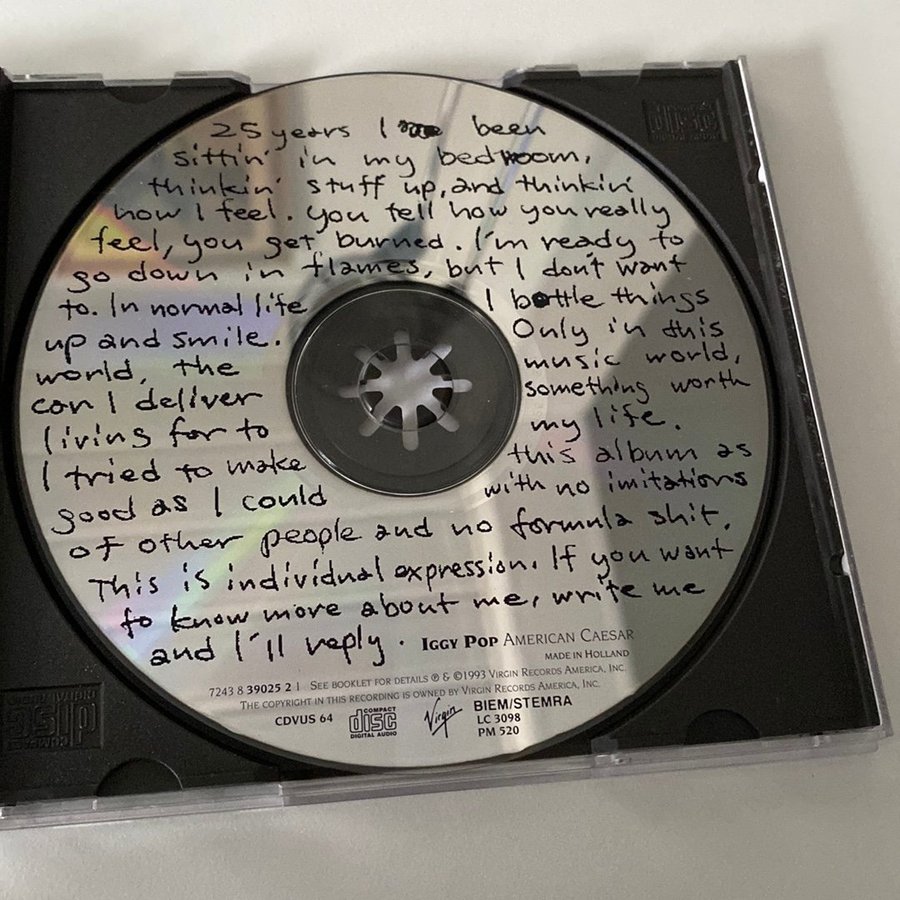 25 years I been
sittin' in my bedroom,
thinkin' stuff up, and thinkin'
how I feel. you tell how you really
feel, you get burned. I'm ready to
go down in flames, but I don't want
to. In normal life I bottle things
up and smile. Only in this
world, the music world,
can I deliver something worth
living for to my life.
I tried to make this album as
good as I could with no imitations
of other people and no formula shit.
This is individual expression. If you want
to know more about me, write me
and I'll reply.
IGGY POP AMERICAN CAESAR
MADE IN HOLLAND
7243 8 39025 2 1 SEE BOOKLET FOR DETAILS ℗ & ©1993 VIRGIN RECORDS AMERICA, INC.
THE COPYRIGHT IN THIS RECORDING IS OWNED BY VIRGIN RECORDS AMERICA, INC.
CDVUS 64
COMPACT
disc
DIGITAL AUDIO
Virgin
BIEM/STEMRA
LC 3098
PM 520